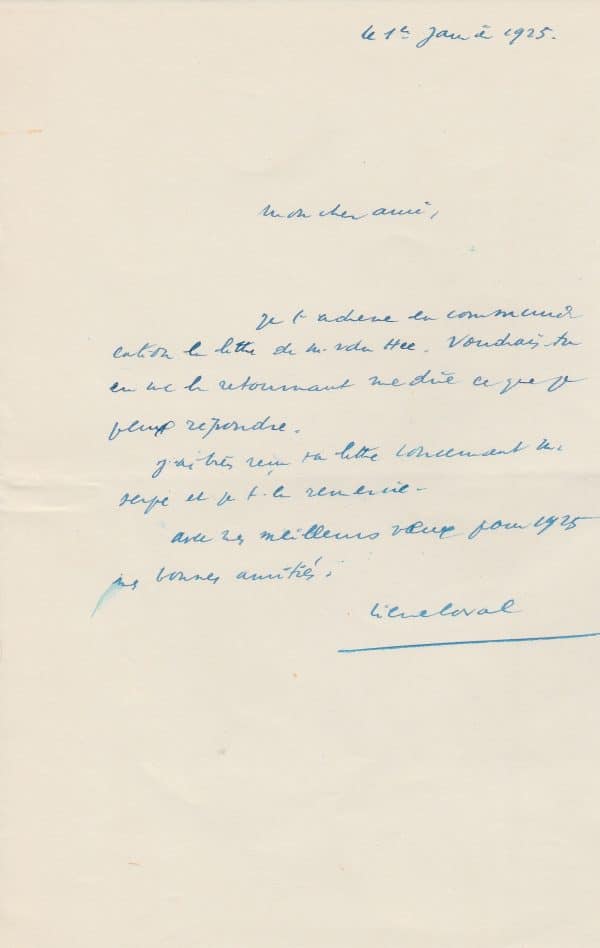 le 1er Janvier 1925.
Mon cher ami,
Je t'adresse en communi
cation la lettre de M. Voudrais-tu
en me la retournant me dire ce que je
peux répondre.
J'ai très reçu ta lettre concernant M.
et je t'en remercie.
avec mes meilleurs vœux pour 1925
mes bonnes amitiés.
Pierre Laval